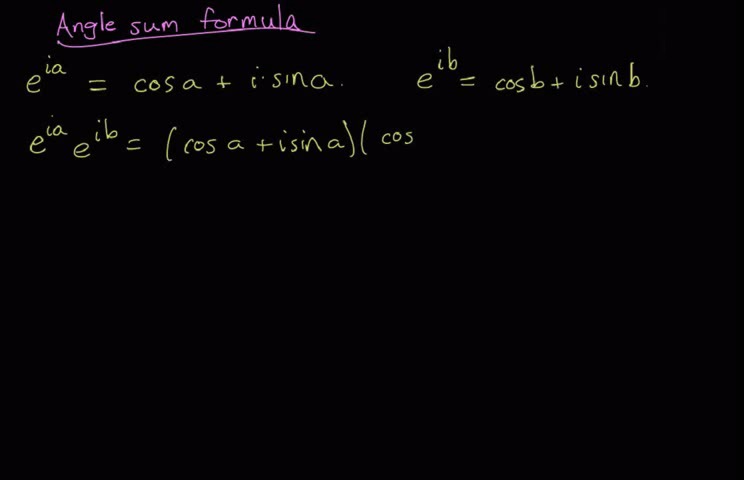 Angle sum formula
e^{ia} = cos a + i·sin a.    e^{ib} = cos b + i sin b.
e^{ia} e^{ib} = (cos a + i sin a)( cos